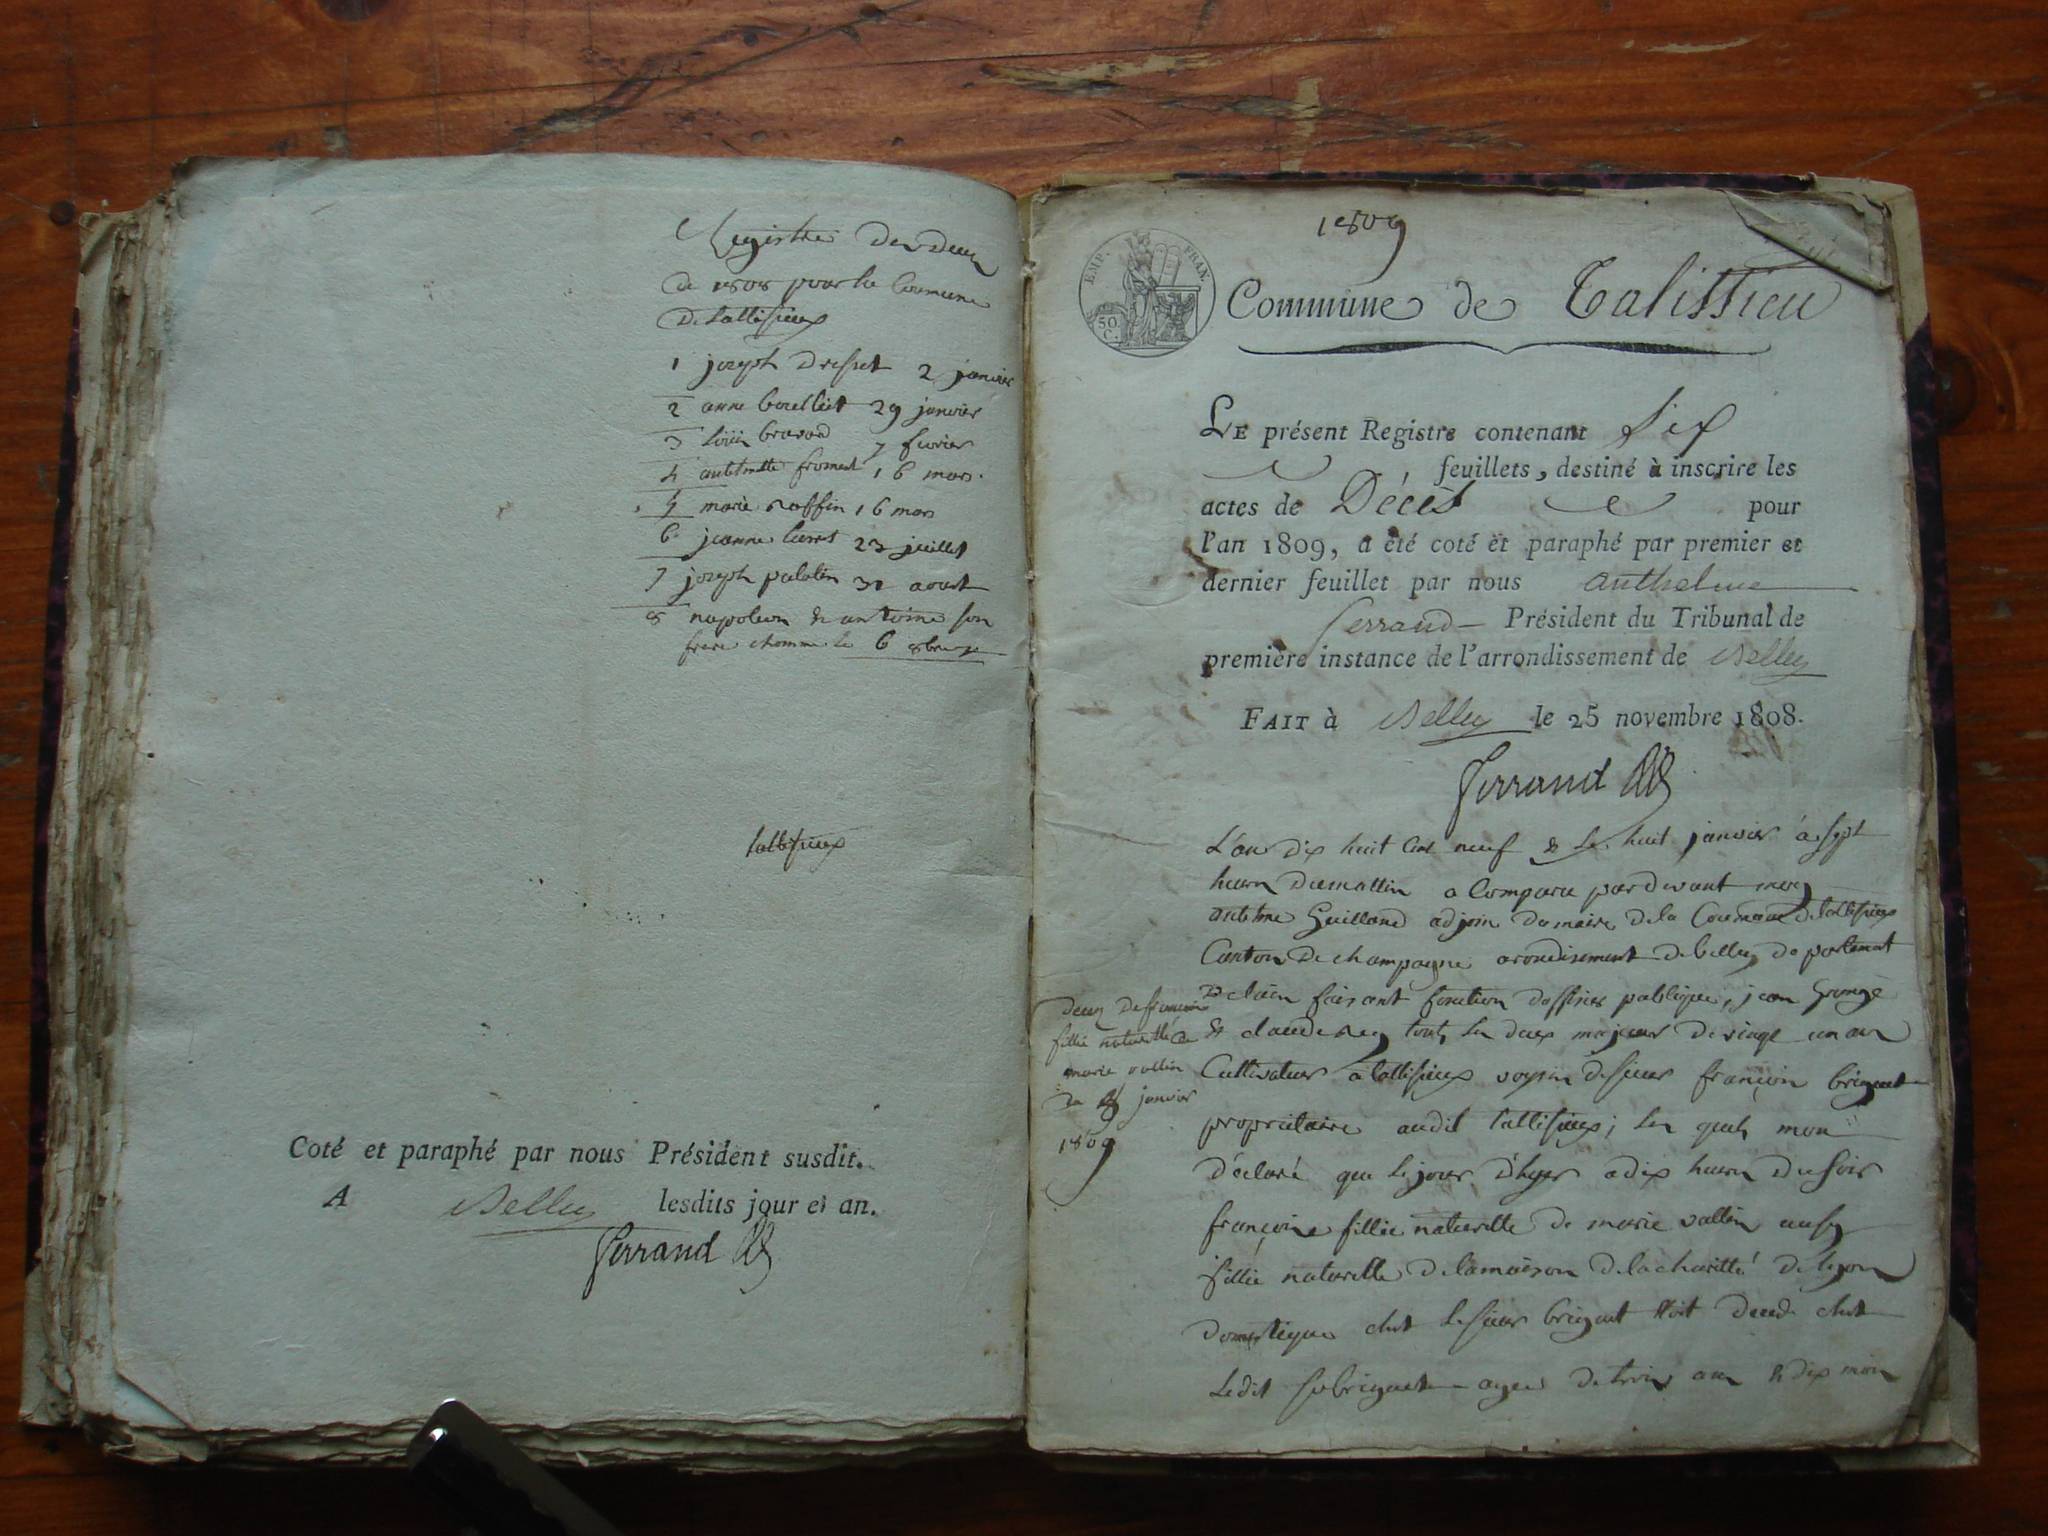 Registre des deces
de 1808 pour la Commune
de tallisieux
1 joseph dresset 2 janvier
2 anne bouillet 29 janvier
3 loüis bravand 7 fevrier
4 anthelmette froment 16 mars
5 marie raffin 16 mars
6 jeanne 23 juillet
7 joseph palatin 31 aoust
8 napoleon & antoine son
frere chomme le 6 8bre
tallisieux
Coté et paraphé par nous Président susdit.
A Belley lesdits jour et an.
Ferrand
1809
EMP. FRAN.
50. C.
Commune de Talissieu
LE présent Registre contenant six
feuillets, destiné à inscrire les
actes de Décès pour
l'an 1809, a été coté et paraphé par premier et
dernier feuillet par nous anthelme
ferrand Président du Tribunal de
première instance de l'arrondissement de Belley
FAIT à Belley le 25 novembre 1808.
Ferrand
L'an dix huit cent neuf & le huit janvier à sept
heures du mattin a Comparu pardevant moy
antelme Guilland adjoin du maire de la Commune de tallisieux
Canton de champagne arondisement de belley departemat
de laïn faisant fonction doffisier publique, jean Grange
& claude Rey tout les deux majeur de vingt un ans
Cultivateur a tallisieux voysin de sieur françoin briguet
propriétaire audit tallisieux; les quels mon
déclaré que le jour d'hyer a dix heures du soir
françoise fillie naturelle de marie vallin aussy
fillie naturelle de la maison de la charitté de lyon
domestique chet le sieur briguet étoit deced chet
le dit sr briguet agee de trois ans & dix mois
deces de francoise
fillie naturelle de
marie vallin
du 8 janvier
1809